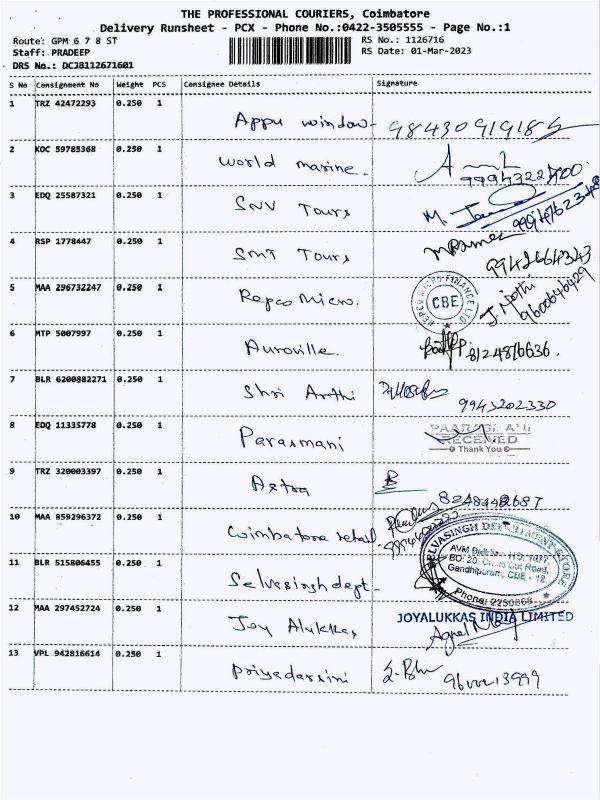 THE PROFESSIONAL COURIERS, Coimbatore
Delivery Runsheet - PCX - Phone No.:0422-3505555 - Page No.:1
Route: GPM 6 7 8 ST RS No.: 1126716
Staff: PRADEEP RS Date: 01-Mar-2023
DRS No.: DCJB112671601
S No Consignment No Weight PCS Consignee Details Signature
1 TRZ 42472293 0.250 1
Appu window- 9843091918
2 KOC 59785368 0.250 1
World marine.
3 EDQ 25587321 0.250 1
SNV Tours
4 RSP 1778447 0.250 1
SMT Tours 9942664343
5 MAA 296732247 0.250 1
Repco Micro. REPCO MICRO FINANCE LTD. CBE J. Jothi 9600646429
6 MTP 5007997 0.250 1
Auroville. 8124876636.
7 BLR 6200882271 0.250 1
Shri Arthi 9943202330
8 EDQ 11335778 0.250 1
Parasmani PAARASMANI RECEIVED Thank You
9 TRZ 320003397 0.250 1
Astra B
10 MAA 859296372 0.250 1
Coimbatore retail.
11 BLR 515806455 0.250 1
Selvasingh dept- SELVASINGH DEPARTMENT STORE
Gandhipuram, CBE - 12.
Phone: 2230868
12 MAA 297452724 0.250 1 JOYALUKKAS INDIA LIMITED
Joy Alukkas
13 VPL 942816614 0.250 1
Priyadarsini